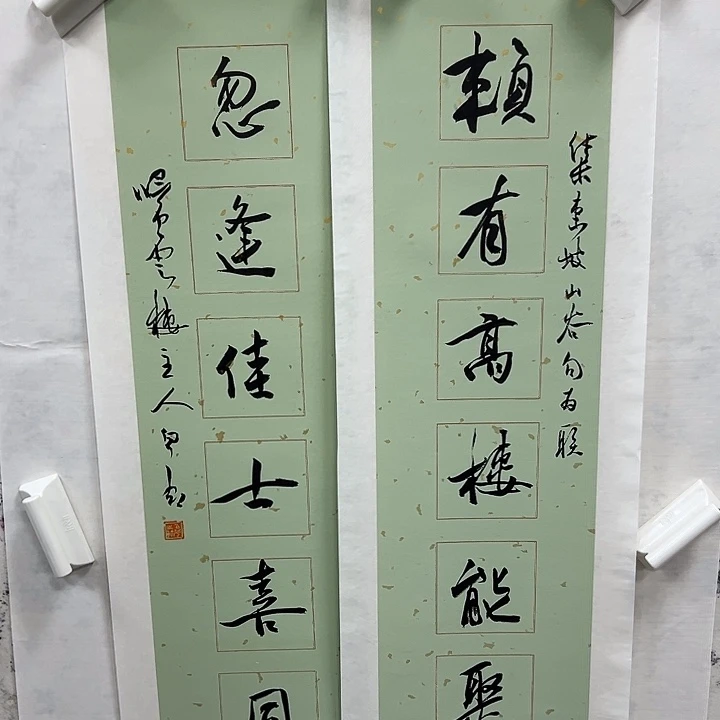 集東坡山谷句為聯
賴有高樓能聚
忽逢佳士喜同
樓主人